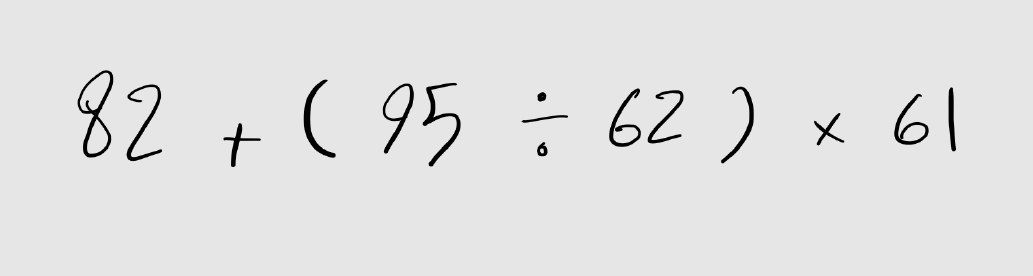 82 + ( 95 ÷ 62 ) × 61